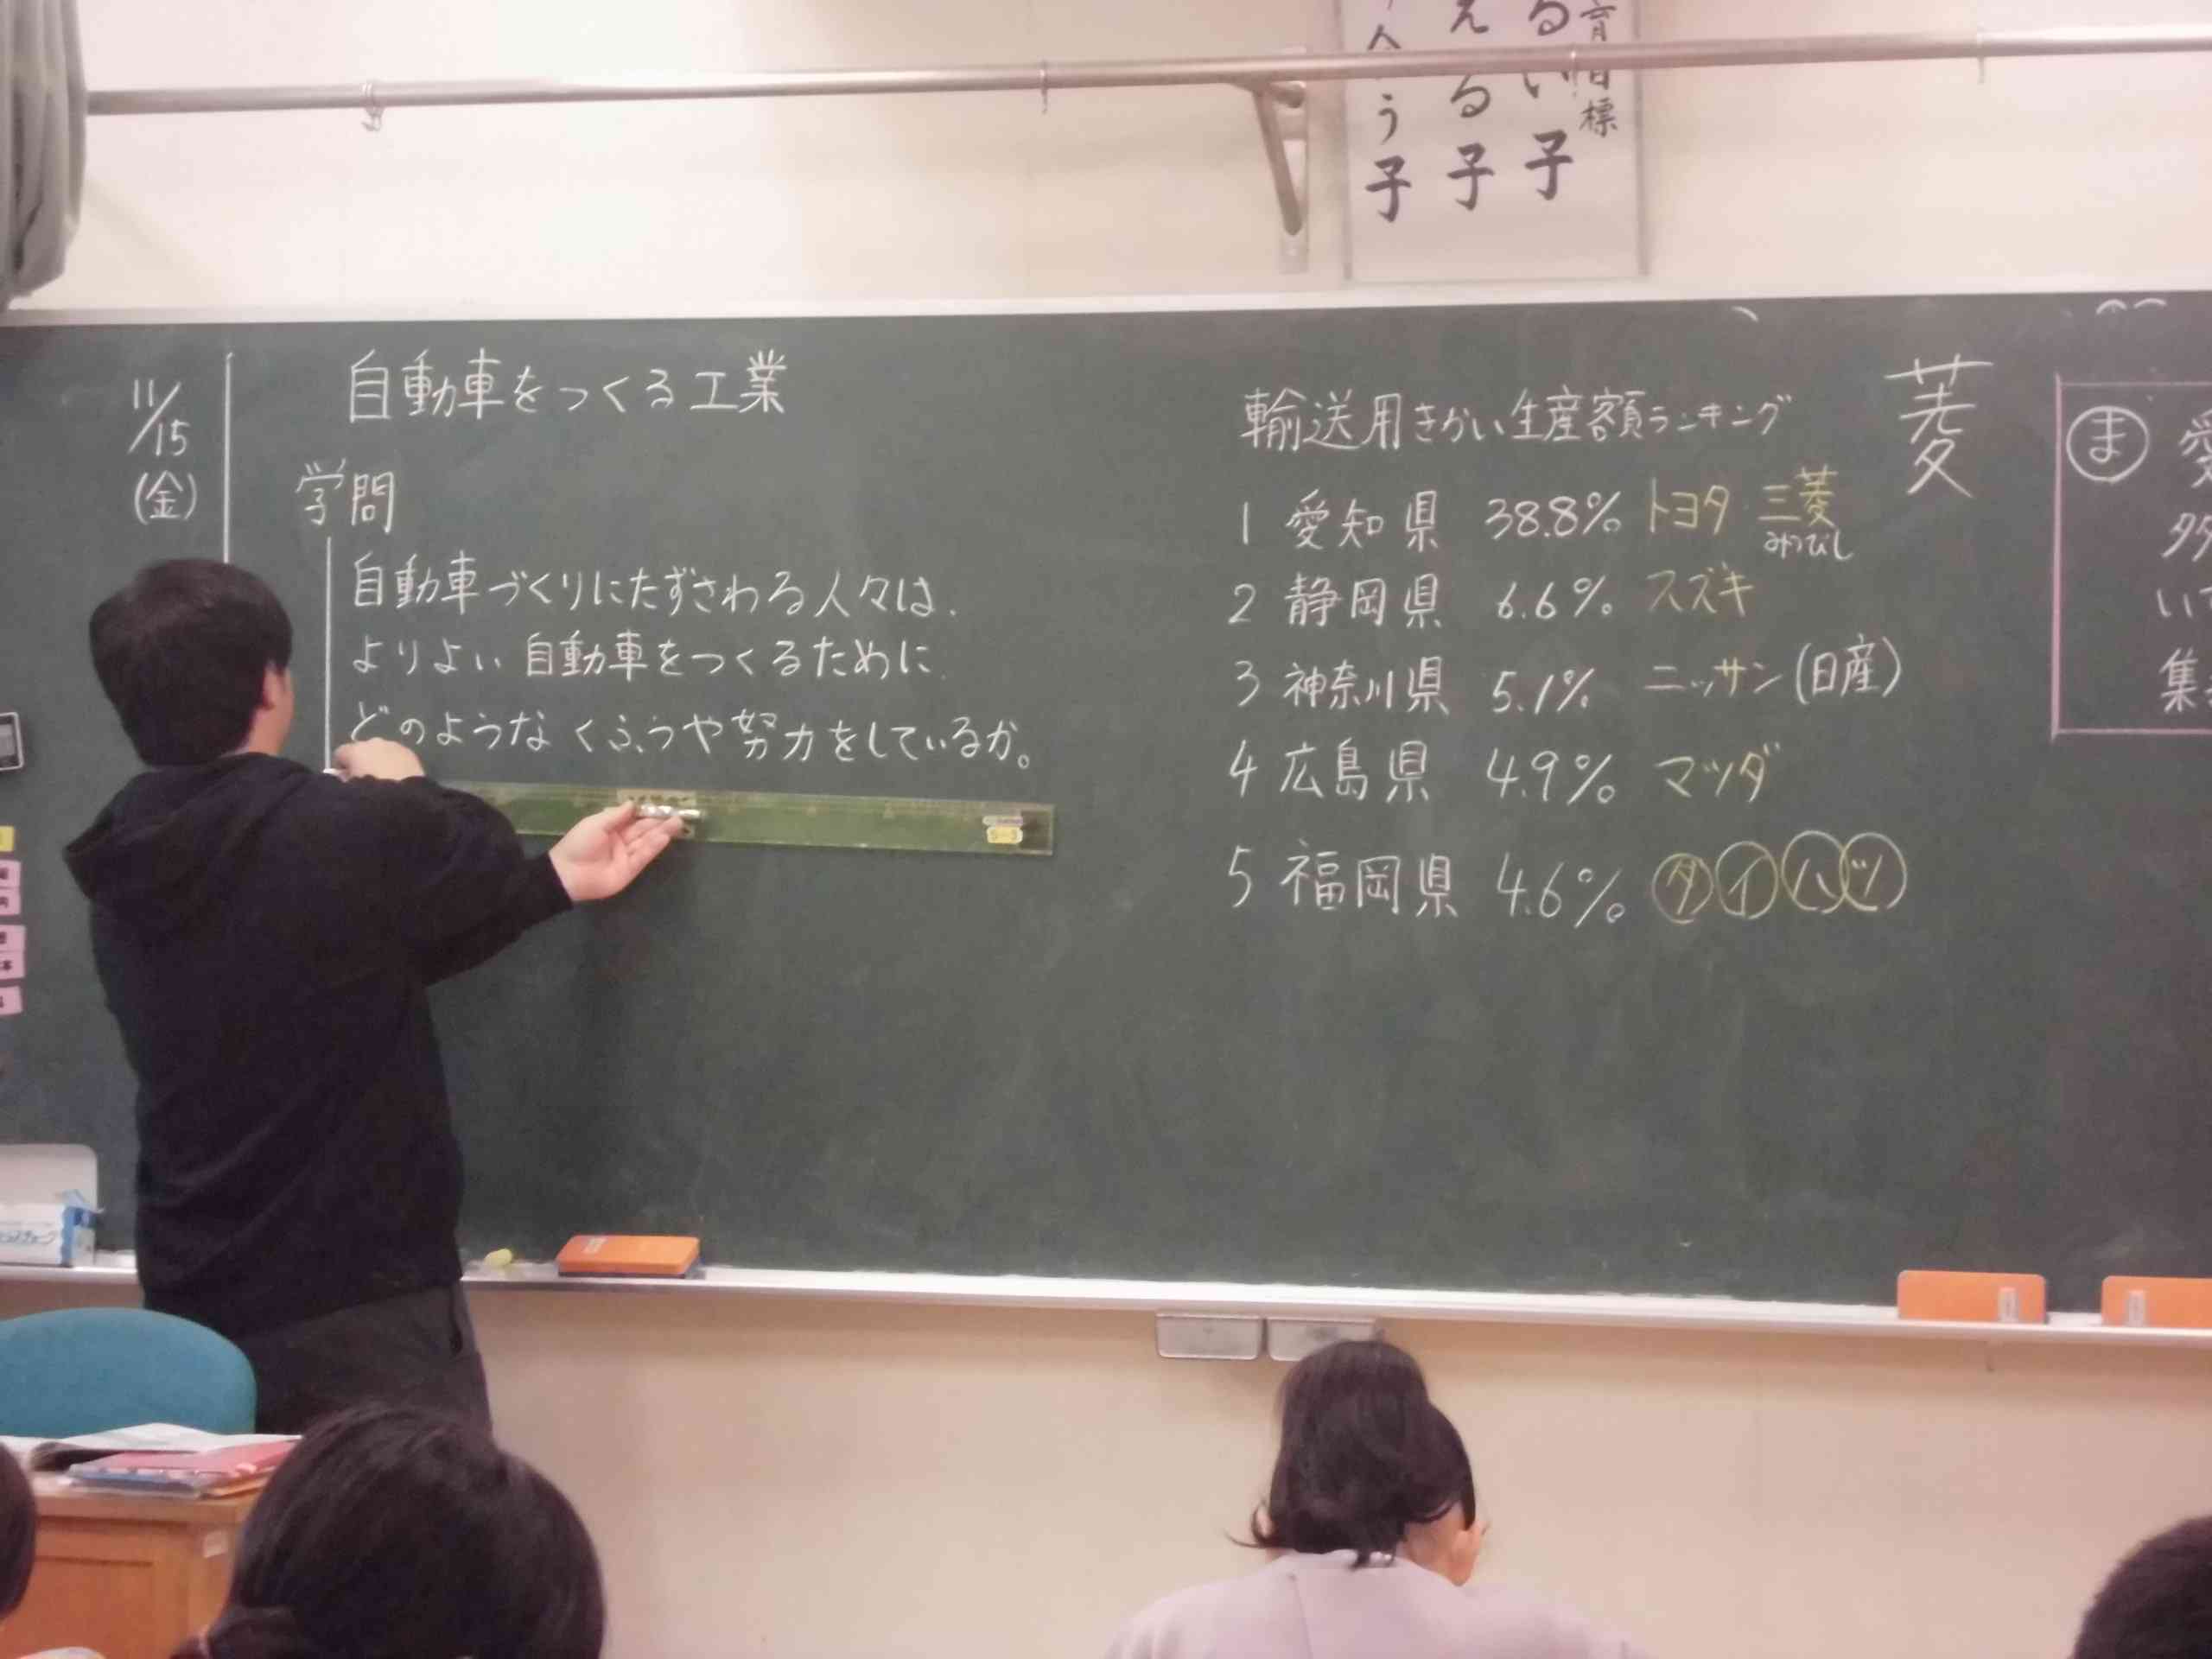 育目標
るい子
える子
う子
11/15
(金)
自動車をつくる工業
学問
自動車づくりにたずさわる人々は、
よりよい自動車をつくるために、
どのようなくふうや努力をしているか。
輸送用きかい生産額ランキング
1 愛知県 38.8% トヨタ 三菱
みつびし
2 静岡県 6.6% スズキ
3 神奈川県 5.1% ニッサン(日産)
4 広島県 4.9% マツダ
5 福岡県 4.6% ダイハツ
菱
ま 愛
多
いて
集